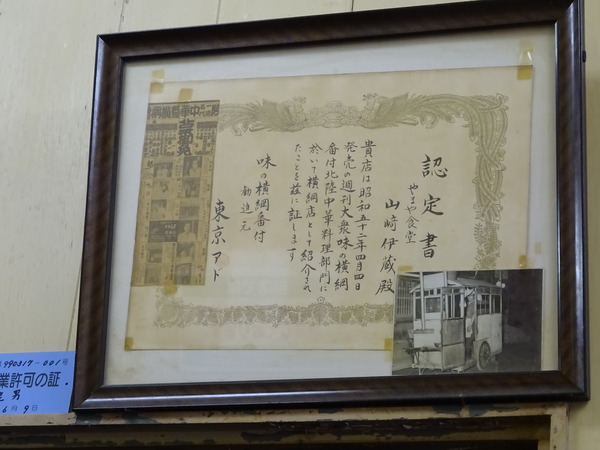 認定書
やまや食堂
山﨑伊蔵殿
貴店は昭和五十二年四月四日
発売の週刊大衆味の横綱
番付北陸中華料理部門に
於いて横綱店として紹介され
たことを茲に証します
味の横綱番付
勧進元
東京アド
990317-001号
業許可の証.
6月9日